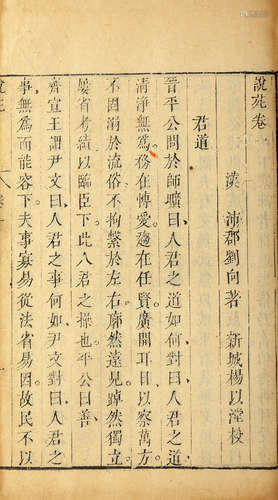 說苑卷一
漢 沛郡劉向著 新城楊以漟校
君道
晉平公問於師曠曰人君之道如何對曰人君之道
清淨無爲務在愽愛趨在任賢廣開耳目以察萬方
不固溺於流俗不拘繫於左右廓然遠見踔然獨立
屢省考績以臨臣下此人君之操也平公曰善
齊宣王謂尹文曰人君之事何如尹文對曰人君之
事無爲而能容下夫事寡易從法省易因故民不以